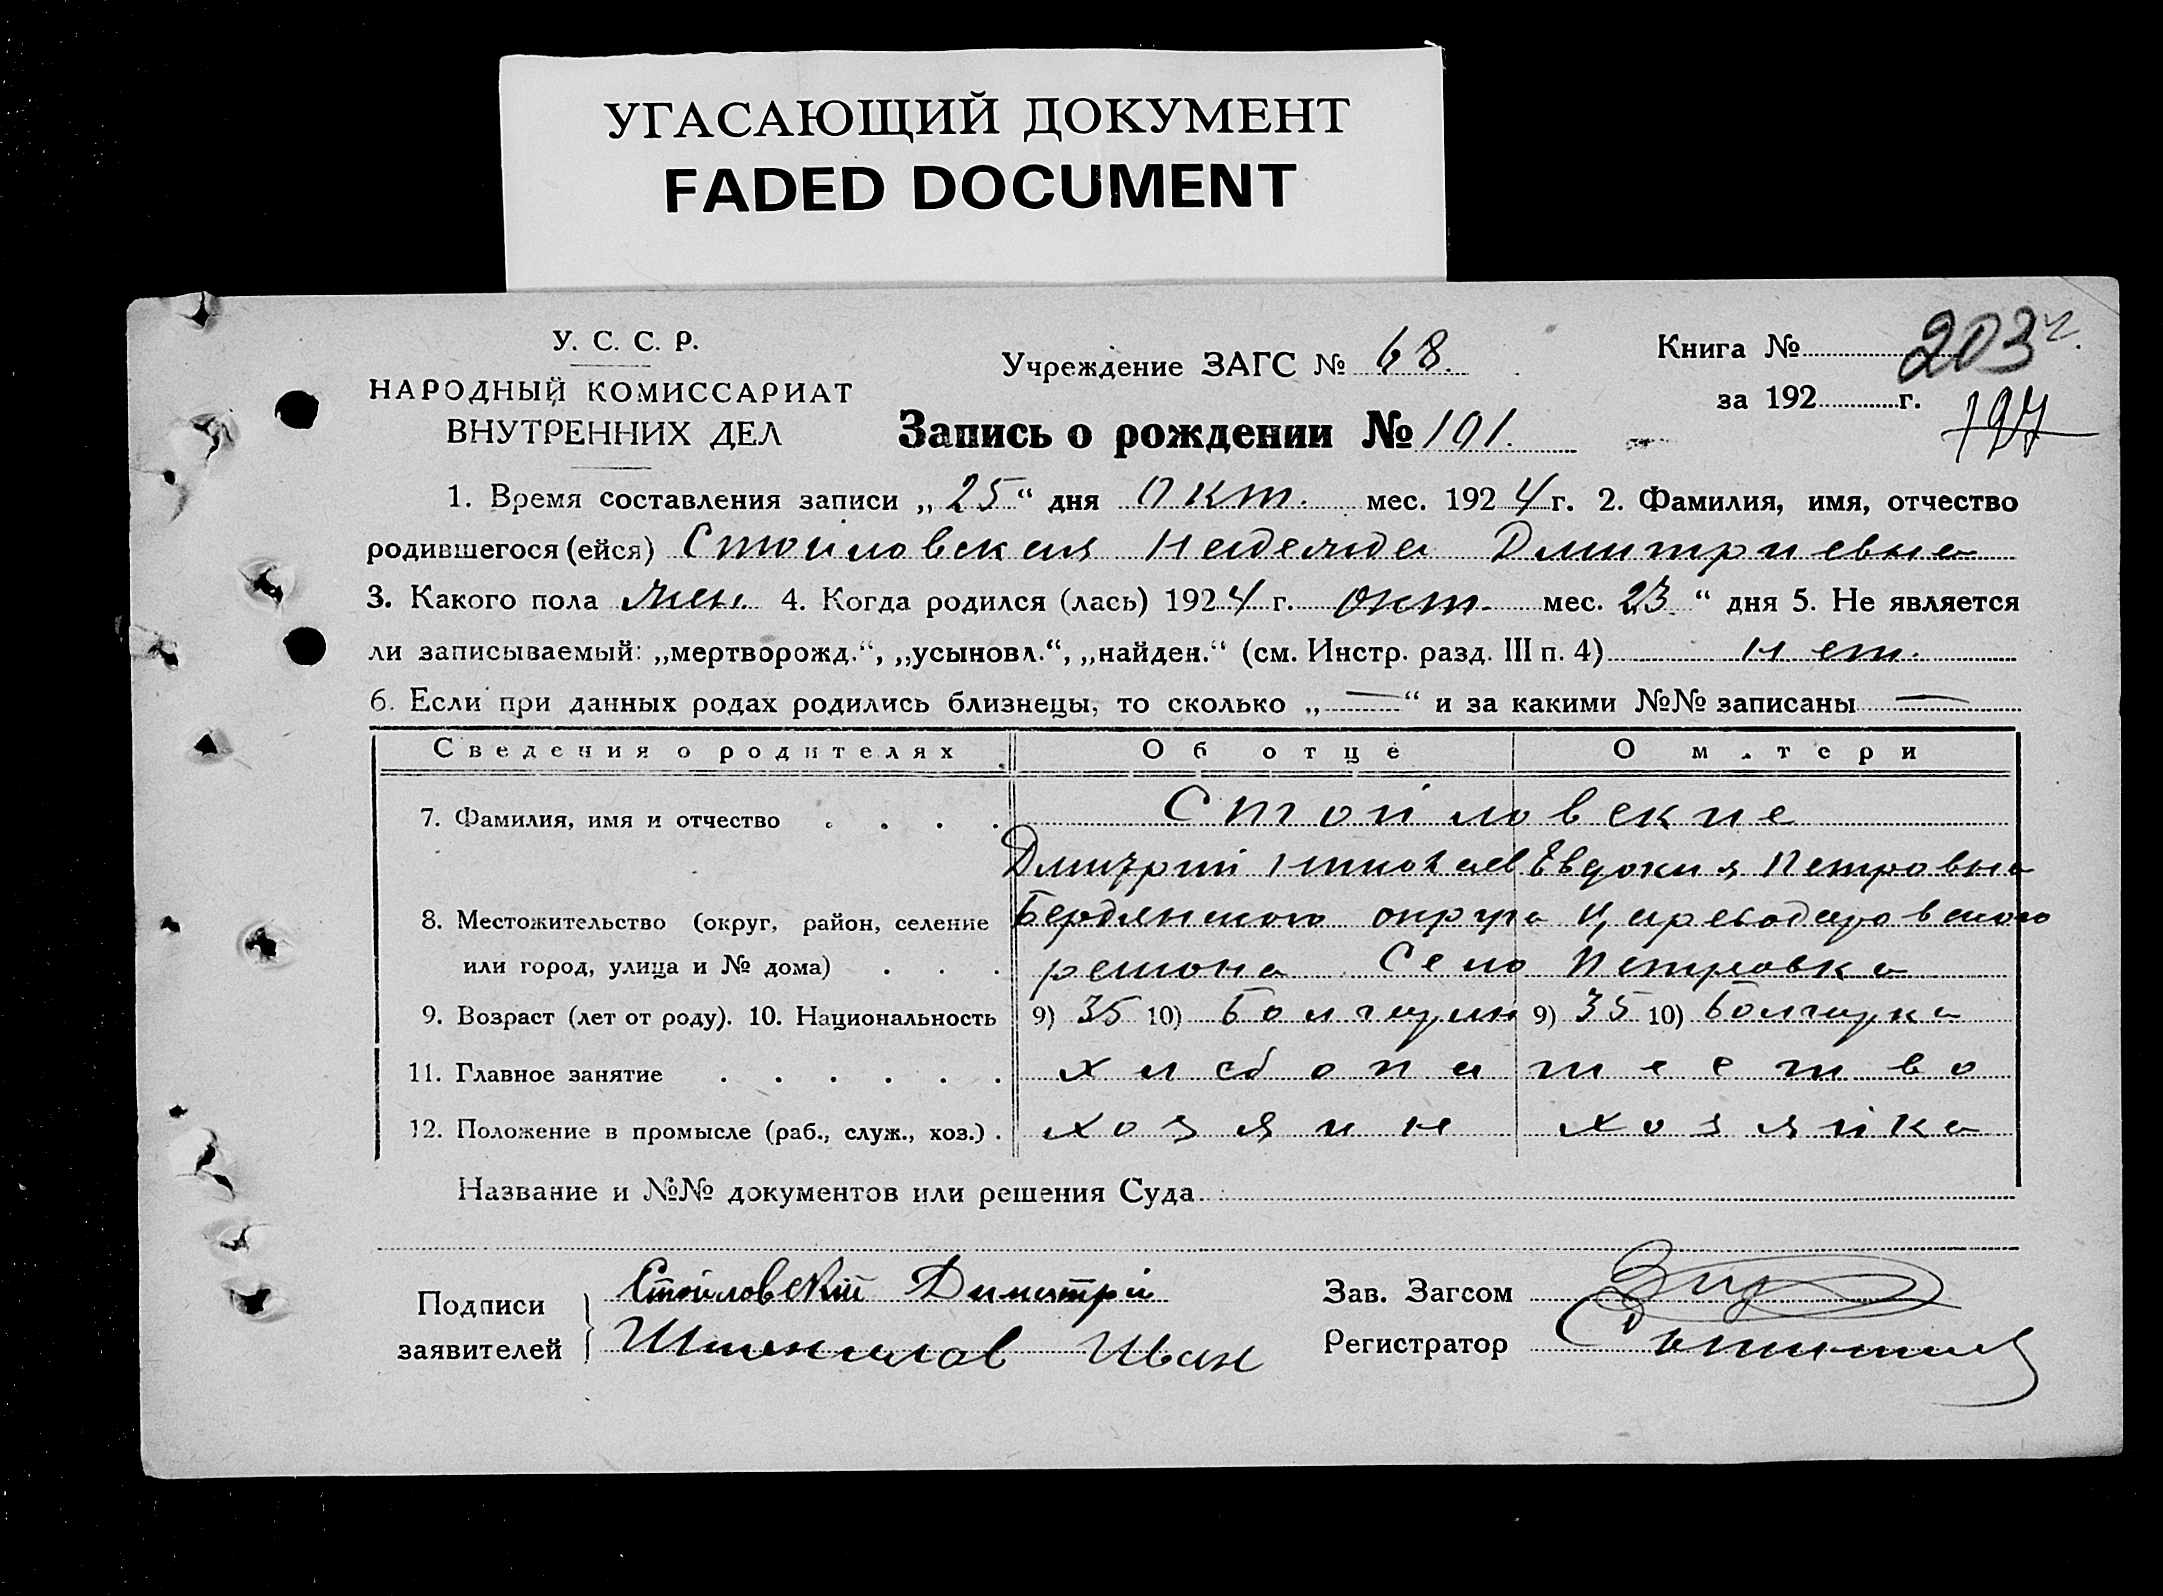 УГАСАЮЩИЙ ДОКУМЕНТ
FADED DOCUMENT
У. С. С. Р.
НАРОДНЫЙ КОМИССАРИАТ
ВНУТРЕННИХ ДЕЛ
Учреждение ЗАГС № 68.
Запись о рождении № 101.
Книга № 203
за 192 г. 197
1. Время составления записи „25“ дня Окт. мес. 1924 г. 2. Фамилия, имя, отчество
родившегося (ейся) Стойловская Надежда Дмитриевна
3. Какого пола жен. 4. Когда родился (лась) 1924 г. окт. мес. 23 “ дня 5. Не является
ли записываемый: „мертворожд.“, „усыновл.“, „найден.“ (см. Инстр. разд. III п. 4) нет.
6. Если при данных родах родились близнецы, то сколько „—“ и за какими №№ записаны —
Сведения о родителях Об отце О матери
7. Фамилия, имя и отчество . . . . Стойловские
Дмитрий Евдокия Петровна
8. Местожительство (округ, район, селение Бердянского округа Цареводаровского
или город, улица и № дома) . . . района Село Петровка
9. Возраст (лет от роду). 10. Национальность 9) 35 10) Болгарин 9) 35 10) Болгарка
11. Главное занятие . . . . . . хлебопашество
12. Положение в промысле (раб., служ., хоз.) . хозяин хозяйка
Название и №№ документов или решения Суда
Подписи
заявителей
Стойловский Димитрий
Иван
Зав. Загсом
Регистратор